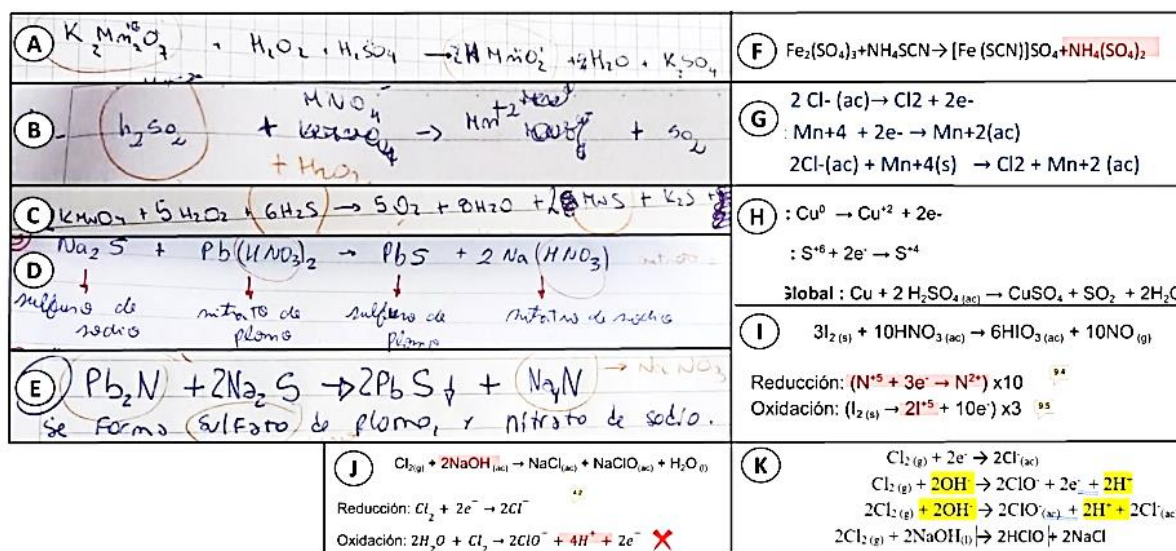 A
K2Mn2O7 + H2O2 + H2SO4 → 2HMnO2 + 2H2O + K2SO4
B
h2SO2 + MNO4 → Mn+2 + SO2
+ H2O2
C
KMnO4 + 5H2O2 + 6H2S → 5O2 + 8H2O + 2 MnS + K2S +
D
Na2S + Pb(HNO3)2 → PbS + 2 Na(HNO3)
sulfuro de sodio
nitrato de plomo
sulfuro de plomo
nitrato de sodio
E
Pb2N + 2Na2S → 2PbS↓ + Na4N → NaNO3
se forma sulfato de plomo, y nitrato de sodio.
F
Fe2(SO4)3+NH4SCN→ [Fe (SCN)]SO4+NH4(SO4)2
G
2 Cl- (ac)→ Cl2 + 2e-
: Mn+4 + 2e- → Mn+2(ac)
2Cl-(ac) + Mn+4(s) → Cl2 + Mn+2 (ac)
H
: Cu0 → Cu+2 + 2e-
: S+6 + 2e- → S+4
Global : Cu + 2 H2SO4 (ac) → CuSO4 + SO2 + 2H2O
I
3I2 (s) + 10HNO3 (ac) → 6HIO3 (ac) + 10NO (g)
Reducción: (N+5 + 3e- → N2+) x10 9.4
Oxidación: (I2 (s) → 2I+5 + 10e-) x3 9.5
J
Cl2(g) + 2NaOH (ac) → NaCl(ac) + NaClO(ac) + H2O(l)
Reducción: Cl2 + 2e− → 2Cl−
Oxidación: 2H2O + Cl2 → 2ClO− + 4H+ + 2e−
K
Cl2 (g) + 2e- → 2Cl-(ac)
Cl2 (g) + 2OH- → 2ClO- + 2e- + 2H+
2Cl2 (g) + 2OH- → 2ClO-(ac) + 2H+ + 2Cl-(ac
2Cl2 (g) + 2NaOH(l) → 2HClO + 2NaCl